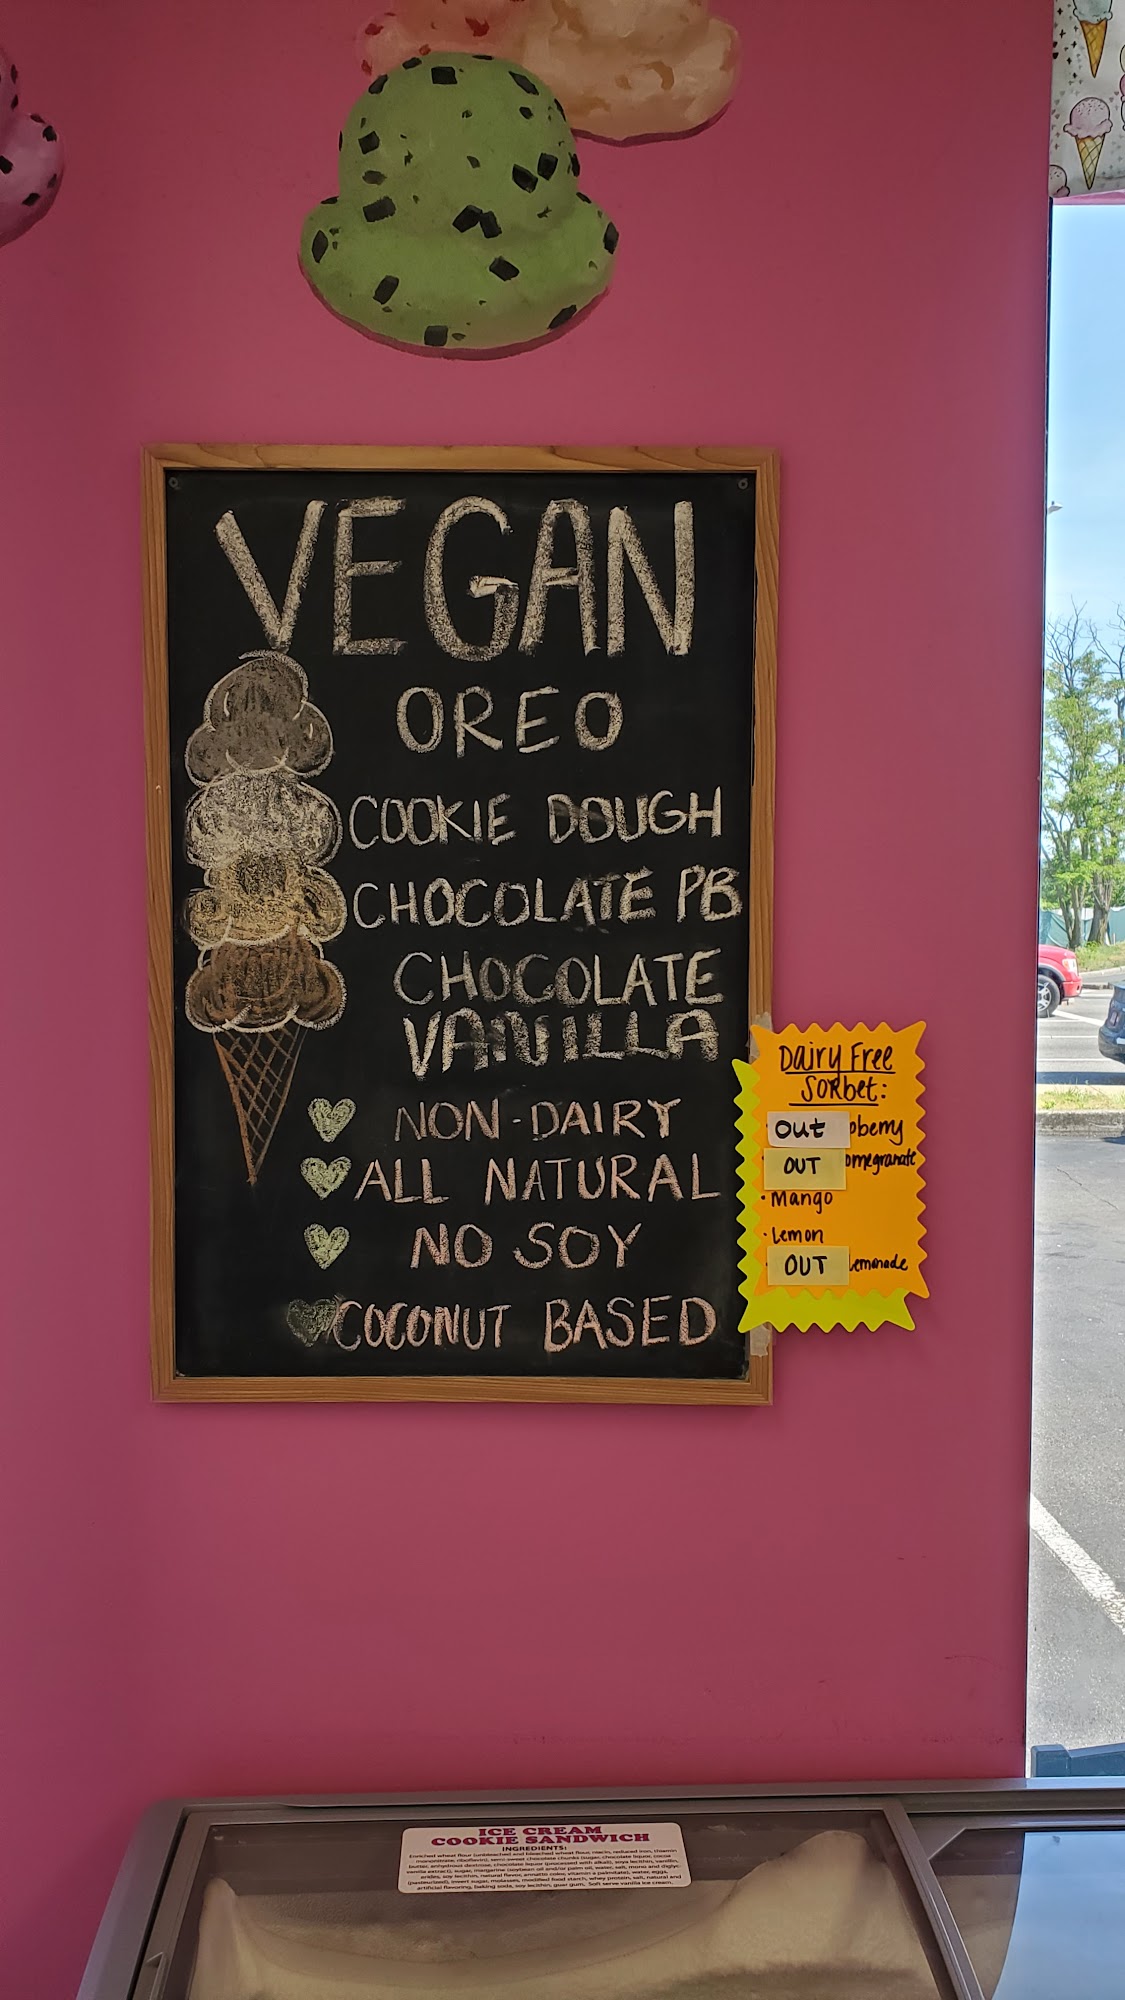 VEGAN
OREO
COOKIE DOUGH
CHOCOLATE PB
CHOCOLATE
VANILLA
NON-DAIRY
ALL NATURAL
NO SOY
COCONUT BASED
Dairy Free
Sorbet:
OUT
OUT
• Mango
• Lemon
OUT
ICE CREAM
COOKIE SANDWICH
INGREDIENTS: